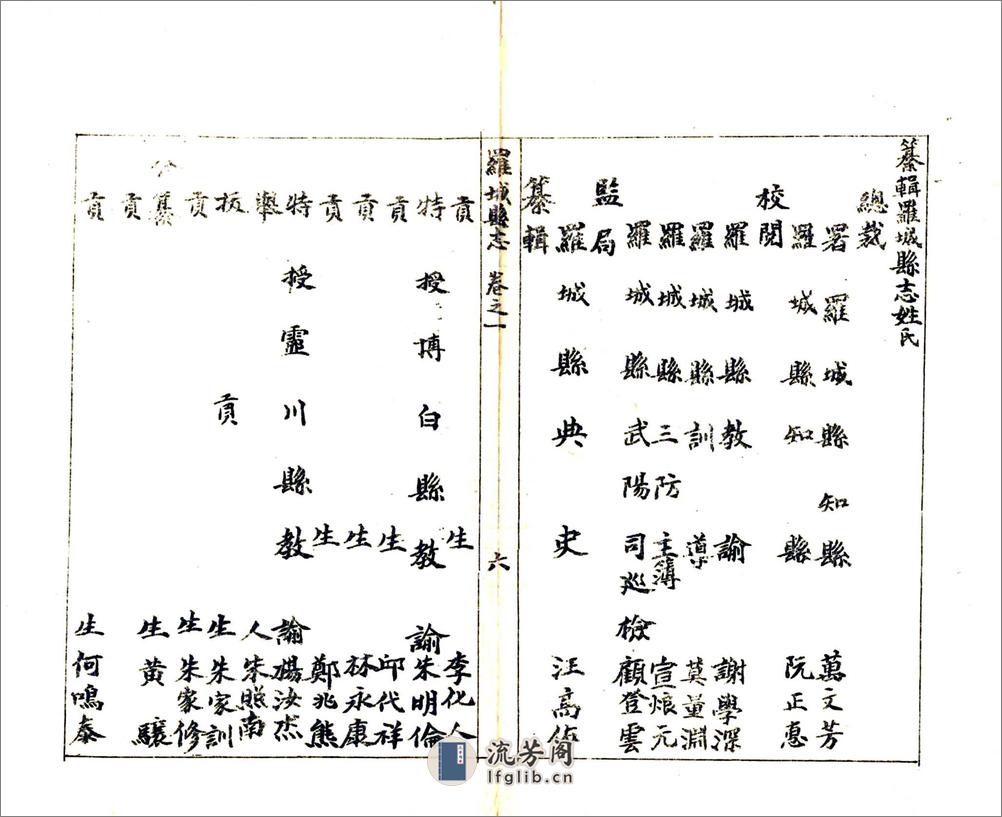 纂輯羅城縣志姓氏
總裁
署羅城縣知縣 萬文芳
羅城縣知縣 阮正惠
校閱
羅城縣教諭 謝學深
羅城縣訓導 莫董淵
羅城縣三防主簿 宣烺元
羅城縣武陽司巡檢 顧登雲
監局
羅城縣典史 汪高
纂輯
羅城縣志 卷之一 六
貢生 李化人
特授博白縣教諭 朱明倫
貢生 邱代祥
貢生 林永康
貢生 鄭兆熊
特授靈川縣教諭 楊汝杰
舉人 朱照南
拔貢生 朱家訓
貢生 朱家修
分纂
貢生 黃驤
貢生 何鳴泰
流芳阁
lfglib.cn